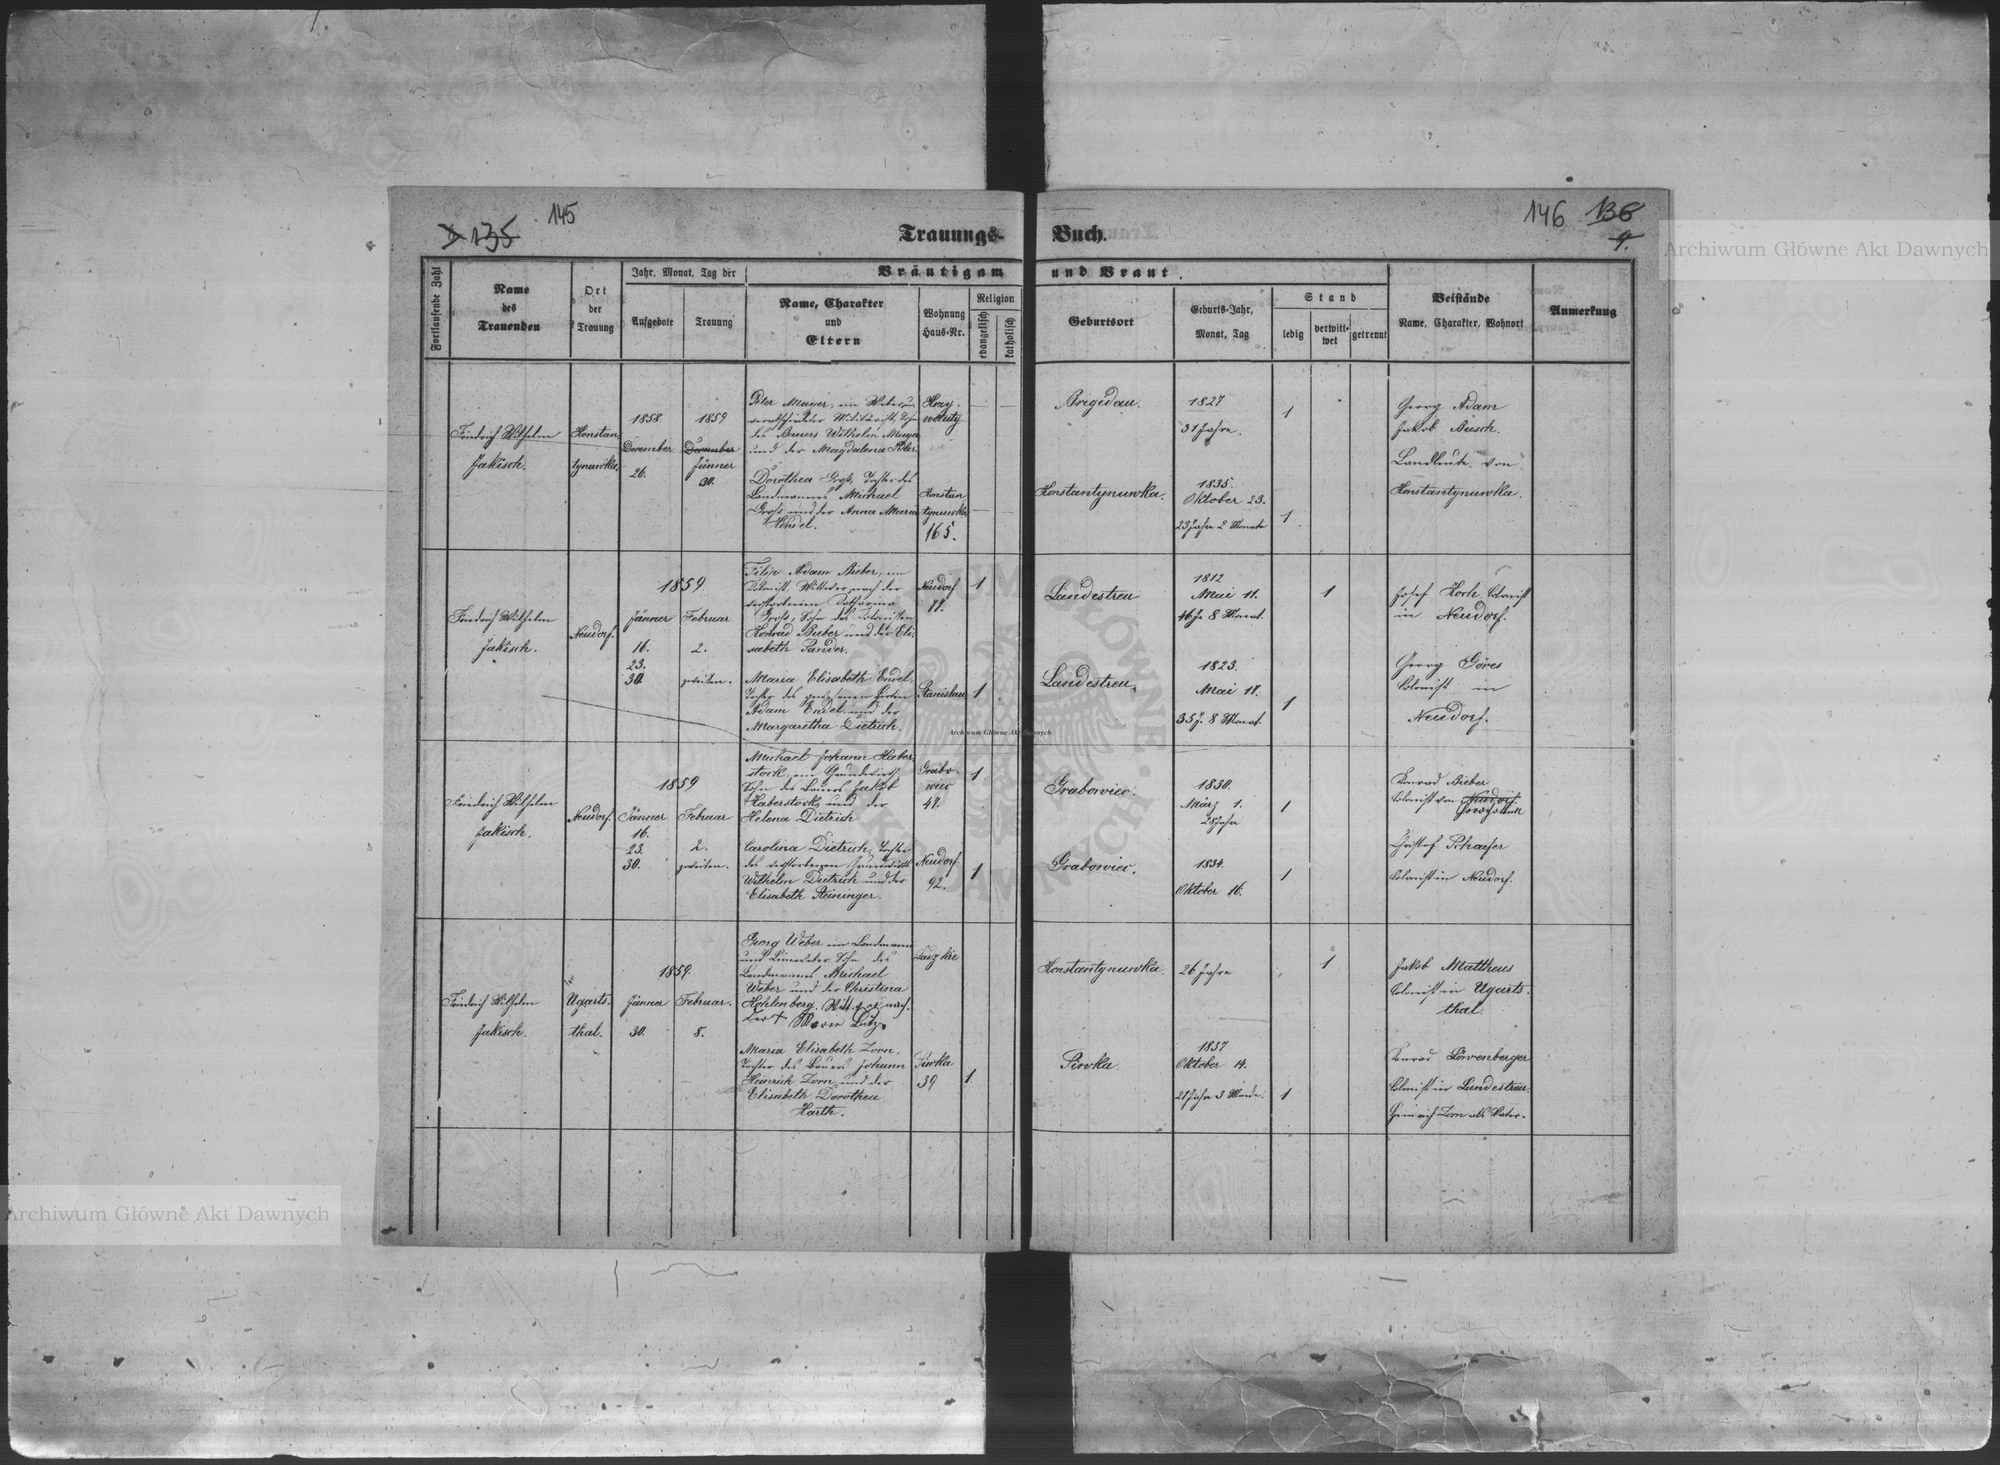 145
135
Trauungs-
Buch.
146 136
4.
Archiwum Główne Akt Dawnych
Fortlaufende Zahl
Name
des
Trauenden
Ort
der
Trauung
Jahr, Monat, Tag der
Aufgebote
Trauung
Bräutigam
und Braut.
Name, Charakter
und
Eltern
Wohnung
Haus-Nr.
Religion
evangelisch
katholisch
Geburtsort
Geburts-Jahr,
Monat, Tag
Stand
ledig
verwitt-
wet
getrennt
Beistände
Name, Charakter, Wohnort
Anmerkung
Friedrich Wilhelm
Jakisch.
Konstan-
tynuwka.
1858
December
26.
1859
December
Jänner
30.
Peter Mayer, ein Weber u.
verabschiedeter Militärist, Sohn
des Bauers Wilhelm Mayer
und der Magdalena
Dorothea Groß, Tochter des
Landmannes Michael
Groß und der Anna Maria
Konstan
tynuwka
165.
Brigidau.
1827
31 Jahre.
1
Konstantynuwka.
1835.
Oktober 23.
23 Jahre 2 Monate
1
Georg Adam
Jakob Busch.
Landleute von
Konstantynuwka.
Friedrich Wilhelm
Jakisch.
Neudorf.
1859.
Jänner
16.
23.
30.
Februar
2.
zweiten.
Filip Adam Bieber, ein
Colonist, Wittwer nach der
verstorbenen Catharina
Groß, Sohn des Colonisten
Konrad Bieber und der Eli-
sabeth Pander.
Neudorf
1
Maria Elisabeth Endel,
Tochter des
Adam Endel und der
Margaretha Dietrich.
Stanislau
1
Landestreu
1812
Mai 11.
46 J. 8 Monat.
1
Landestreu,
1823.
Mai 18.
35 J. 8 Monat.
1
Josef Koch Colonist
in Neudorf.
Georg Göres
Colonist in
Neudorf.
Friedrich Wilhelm
Jakisch.
Neudorf.
1859
Jänner
16.
23.
30.
Februar
2.
zweiten.
Michael Johann Haber-
stock, ein Grundwirth,
Sohn des Bauers Jakob
Haberstock und der
Helena Dietrich
Grabo-
wiec
1
Carolina Dietrich, Tochter
des verstorbenen Grundwirth
Wilhelm Dietrich und der
Elisabeth Steininger.
Neudorf.
92.
1
Grabowiec.
1830.
März 1.
28 Jahre
1
Grabowiec.
1834.
Oktober 16.
1
Konrad Bieber
Colonist von Neudorf.
Christof Schaefer
Colonist in Neudorf.
Friedrich Wilhelm
Jakisch.
Ugarts-
thal.
1859.
Jänner
30.
Februar.
8.
Georg Weber ein Landmann
und Leineweber Sohn des
Landmannes Michael
Weber und der Christina
Hohlenberg. Wittwer nach
der + Marie Lutz.
Maria Elisabeth Zorn,
Tochter des Bauers Johann
Heinrich Zorn und der
Elisabeth Dorothea
Harth.
Siwka
39
1.
Konstantynuwka.
26 Jahre
1
Siwka.
1837
Oktober 14.
21 Jahre 3 Monde.
1
Jakob Mattheus
Colonist in Ugarts-
thal.
Konrad Löwenberger
Colonist in Landestreu.
Heinrich Zorn als Vater.
Archiwum Główne Akt Dawnych
Archiwum Główne Akt Dawnych